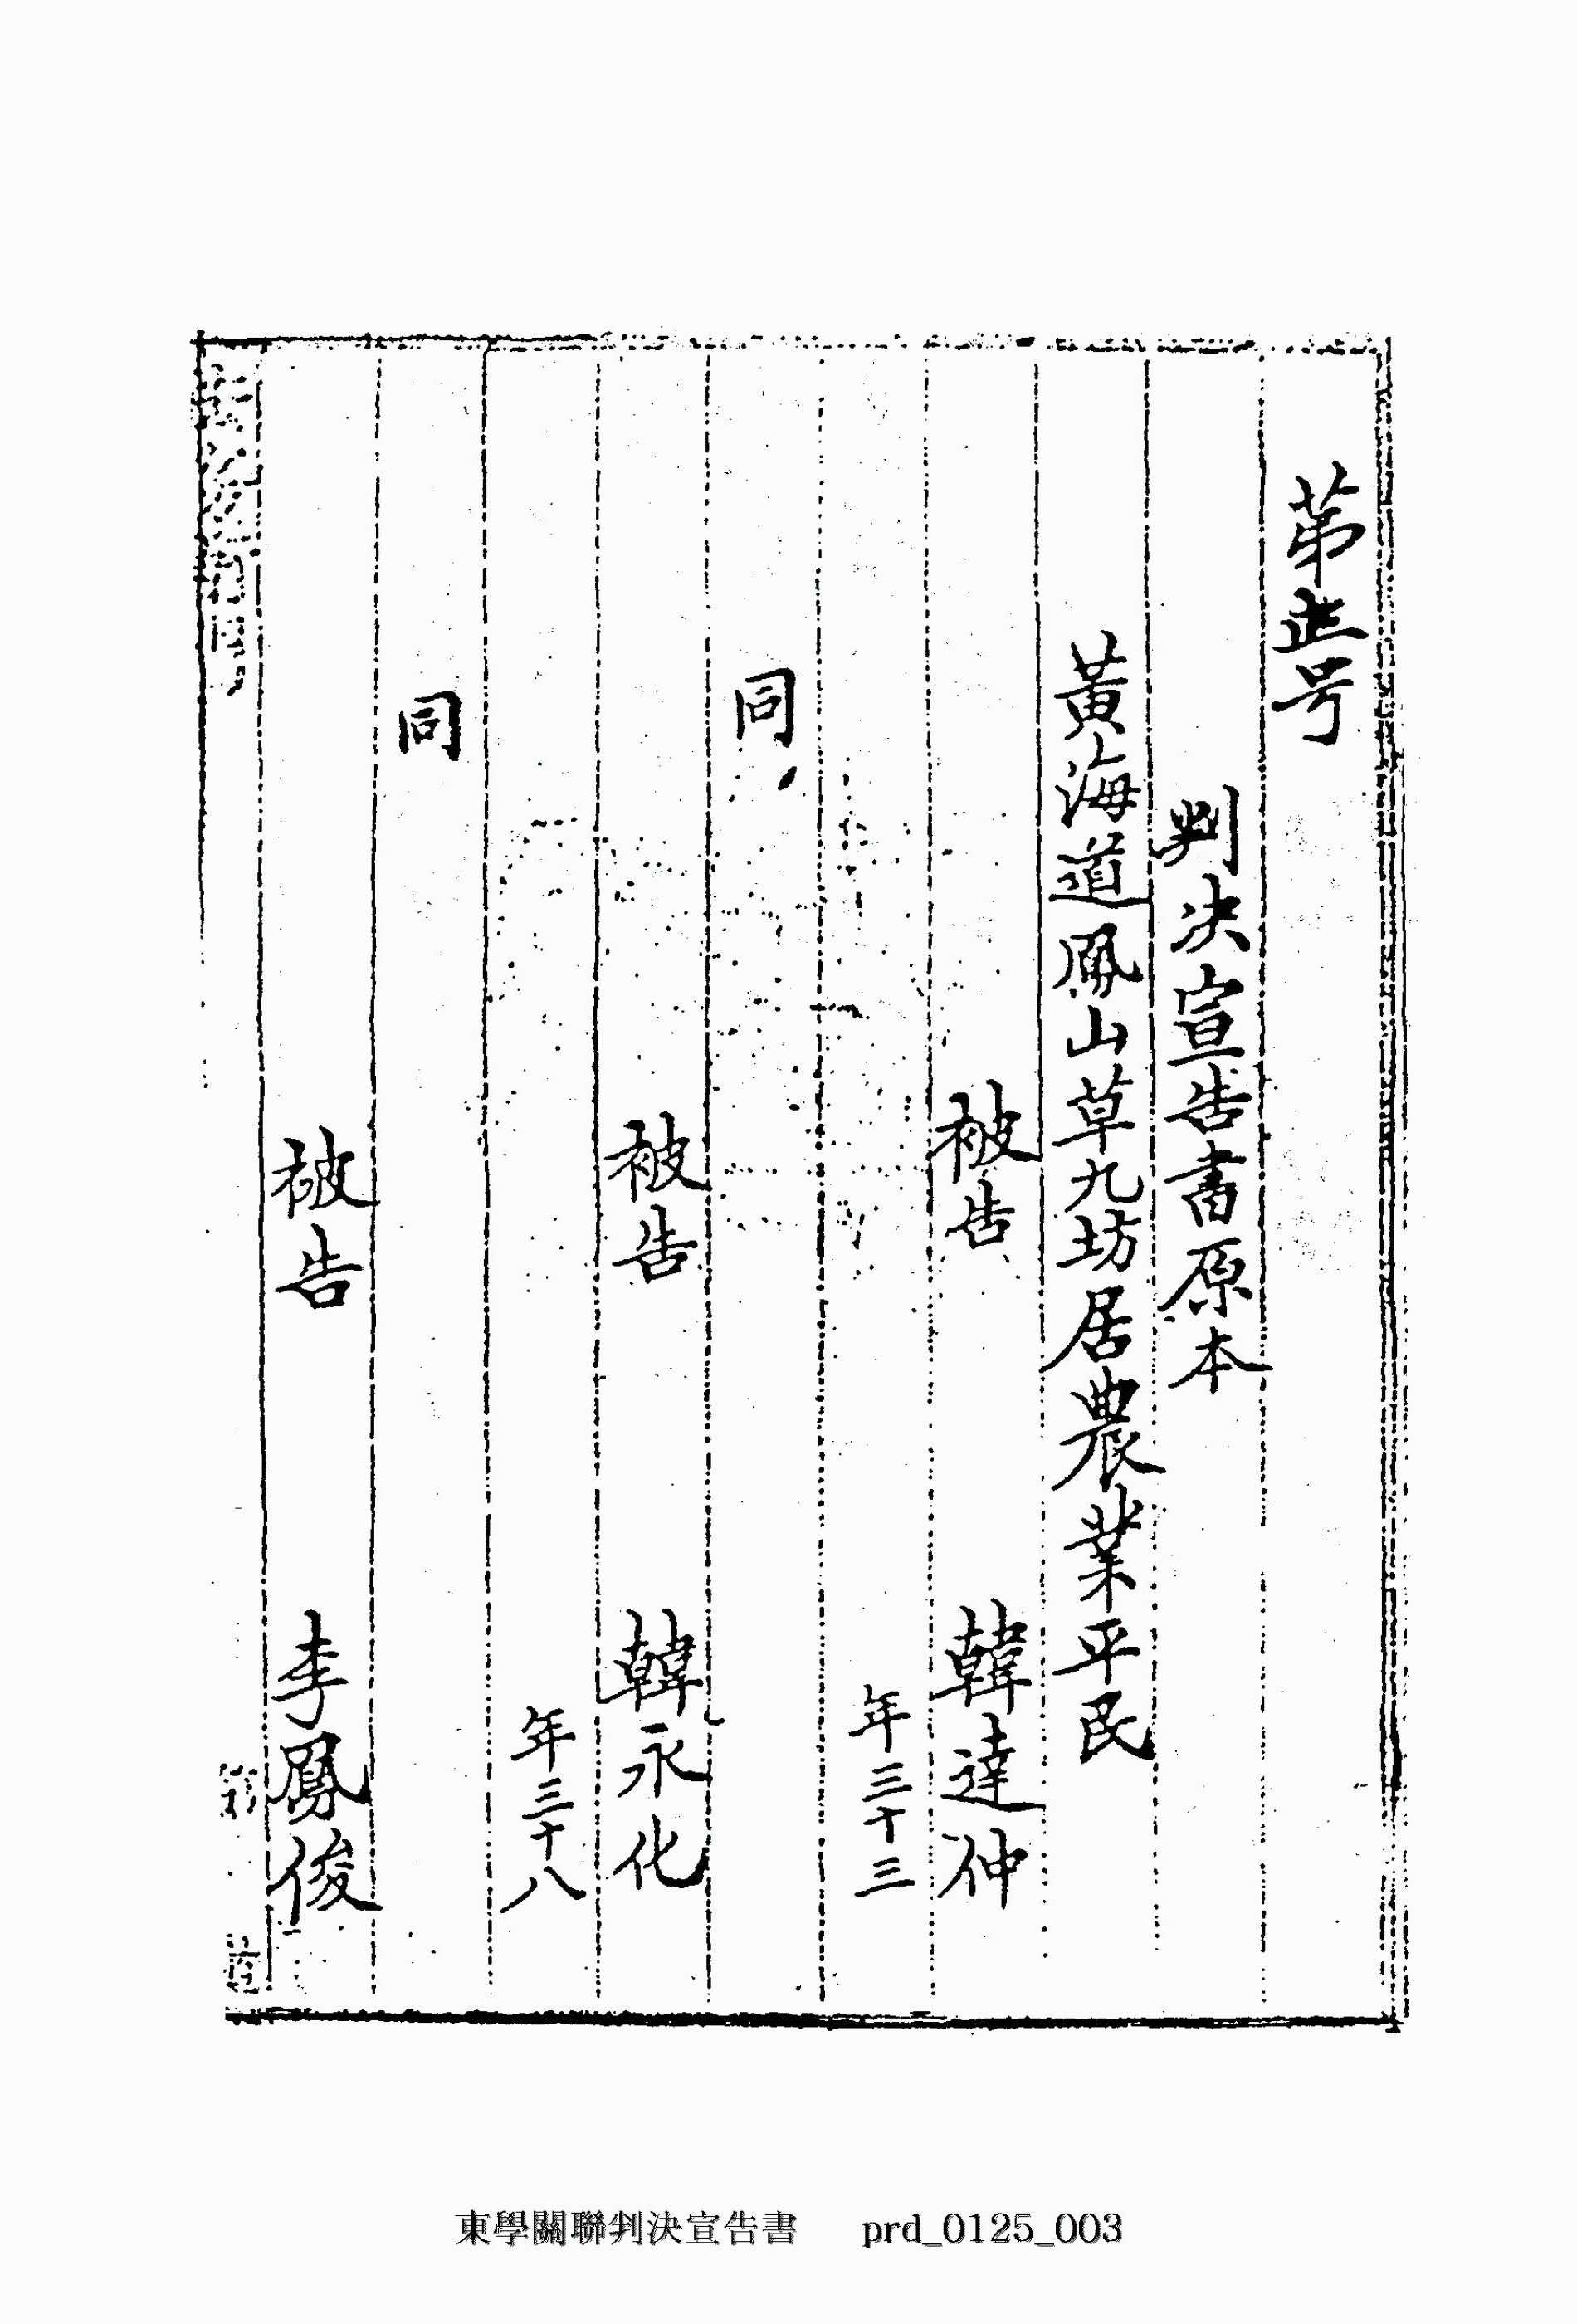 第 号
判決宣告書原本
黃海道鳳山草九坊居農業平民
被告 韓達仲
年三十三
同
被告 韓永化
年三十八
同
被告 李鳳俊
東學關聯判決宣告書 prd_0125_003